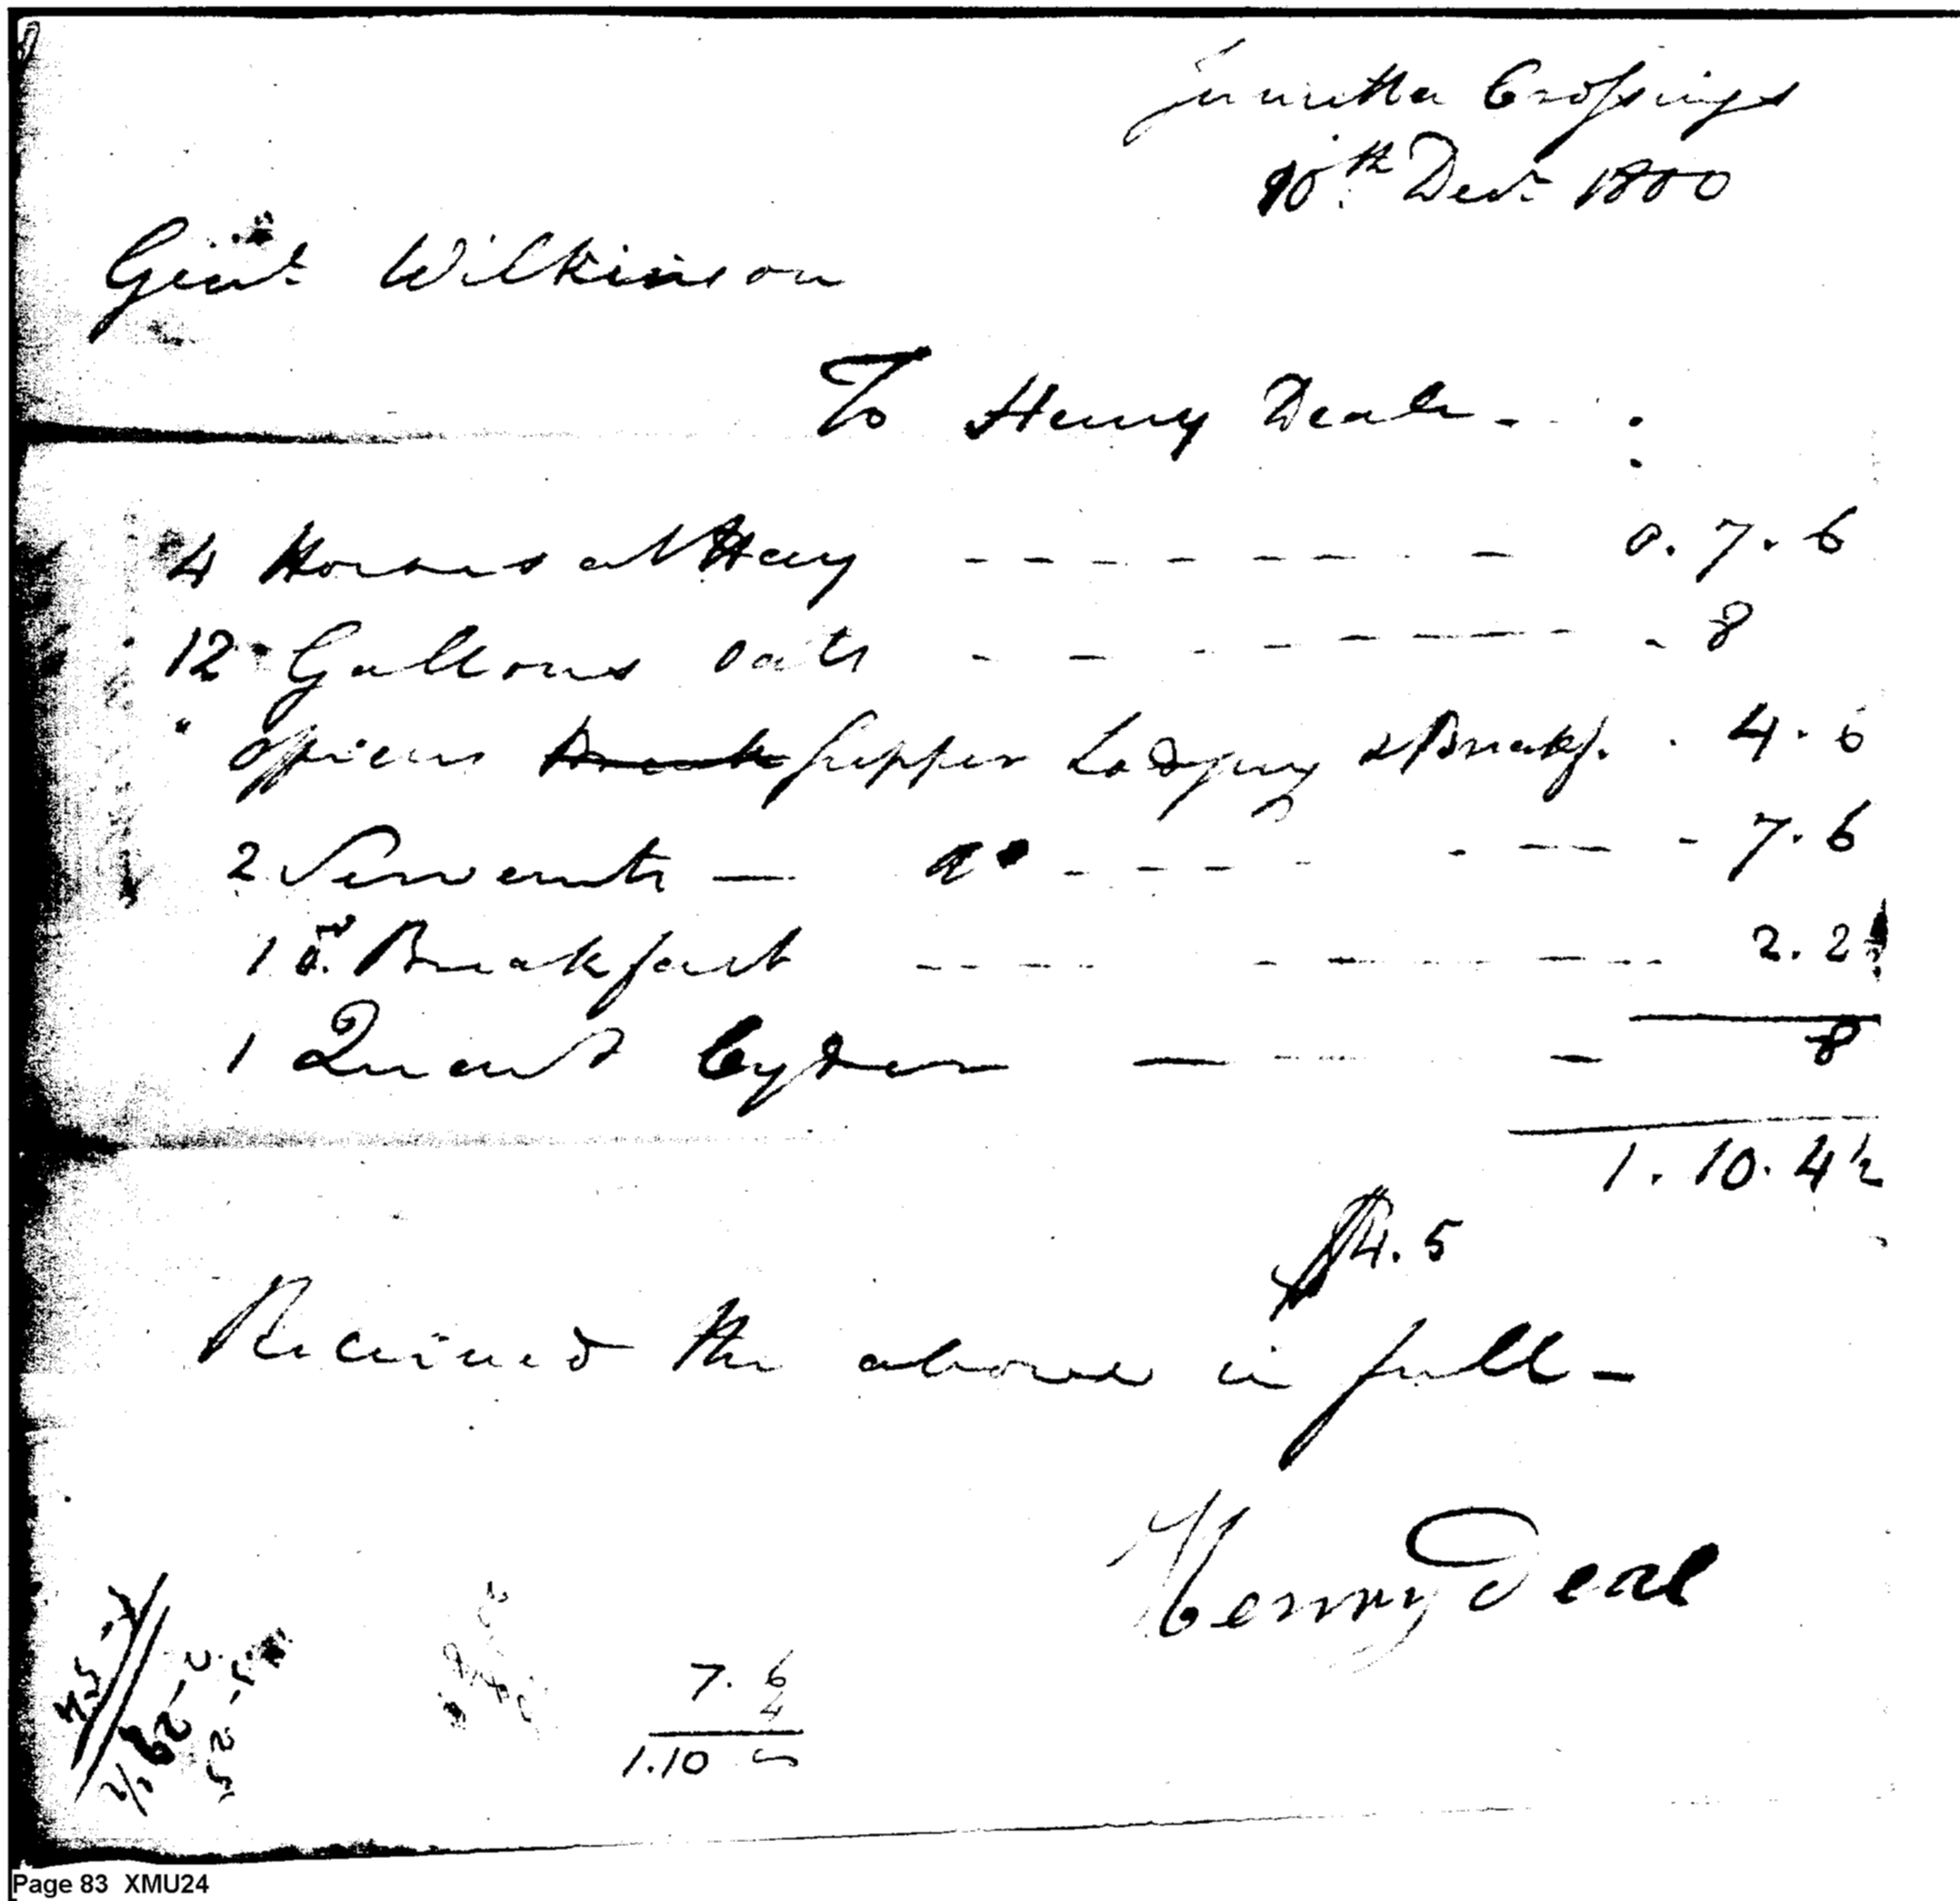 Juniatta Crossings
10th Decr 1800
Genl. Wilkinson
To Henry Deale
4 Horses at Hay 0. 7. 6
12 Gallons Oats 8
" Officers Break Supper Lodging & Breakf. 4. 6
2 Servants do 7. 6
1 do. Breakfast 2. 2
1 Quart Cyder 8
1. 10. 4½
$4. 5
Received the above in full
Henry Deal
7. 6
4
1.10
Page 83 XMU24